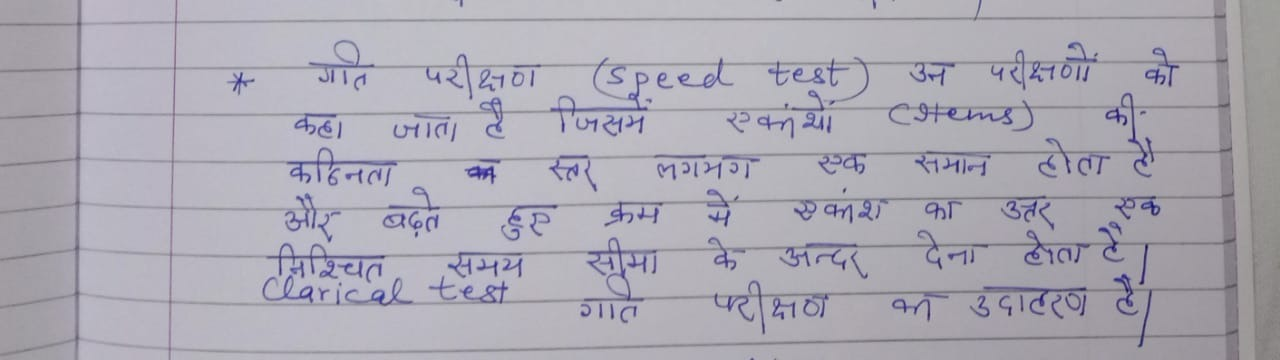 * गति परीक्षण (speed test) उन परीक्षणों को
कहा जाता है जिसमें एकांशों (Items) की
कठिनता का स्तर लगभग एक समान होता है
और बढ़ते हुए क्रम में एकांश का उत्तर एक
निश्चित समय सीमा के अन्दर देना होता है|
Clarical test गति परीक्षण का उदाहरण है|